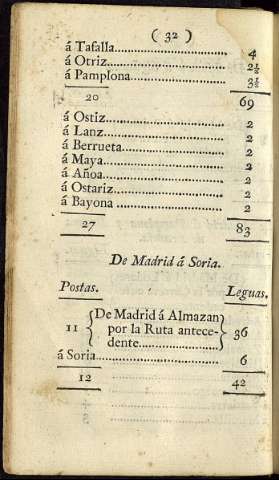 ( 32 )
á Tafalla.............................. 4
á Otriz................................. 2½
á Pamplona........................... 3½
20 69
á Ostiz................................. 2
á Lanz................................. 2
á Berrueta............................ 2
á Maya................................ 2
á Añoa................................ 2
á Ostariz............................. 2
á Bayona............................. 2
27 83
De Madrid á Soria.
Postas. Leguas.
De Madrid á Almazan
11 { por la Ruta antece- } 36
dente....................
á Soria................................. 6
12 42